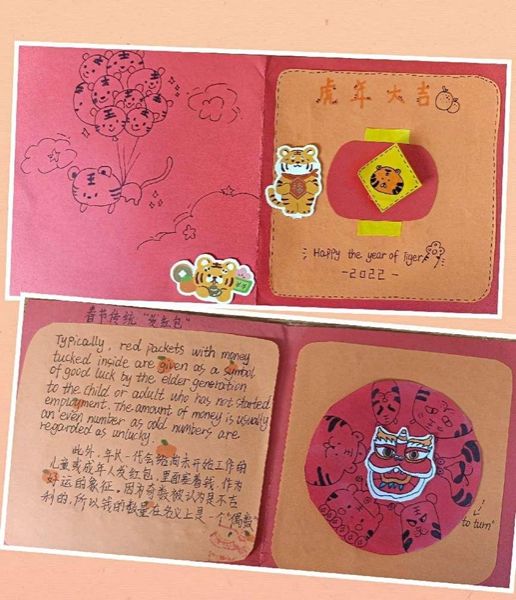 虎年大吉
王
Happy the year of Tiger
-2022-
春节传统“发红包”
Typically, red packets with money
tucked inside are given as a symbol
of good luck by the elder generation
to the child or adult who has not started
employment. The amount of money is usually
an even number as odd numbers are
regarded as unlucky.
此外,年长一代会给尚未开始工作的
儿童或成年人发红包,里面塞着钱,作为
好运的象征。因为奇数被认为是不吉
利的,所以钱的数量在名义上是一个“偶数”
to turn"